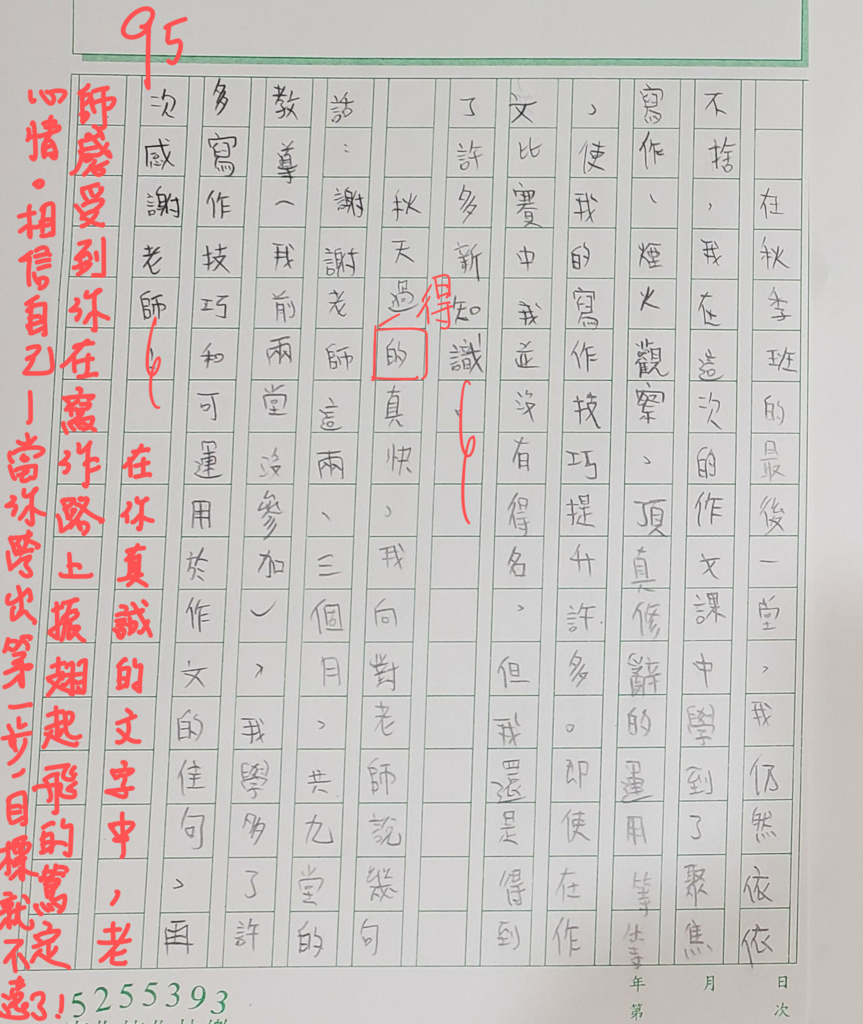 95
在秋季班的最後一堂，我仍然依依
不捨，我在這次的作文課中學到了聚焦
寫作、煙火觀察、頂真修辭的運用等等
，使我的寫作技巧提升許多。即使在作
文比賽中我並沒有得名，但我還是得到
了許多新知識。
得
秋天過的真快，我向對老師說幾句
話：謝謝老師這兩、三個月，共九堂的
教導（我前兩堂沒參加），我學多了許
多寫作技巧和可運用於作文的佳句，再
次感謝老師！
在你真誠的文字中，老
師感受到你在寫作路上振翅起飛的篤定
心情。相信自己—當你跨出第一步，目標就不遠了！
年 月 日
第 次
5255393